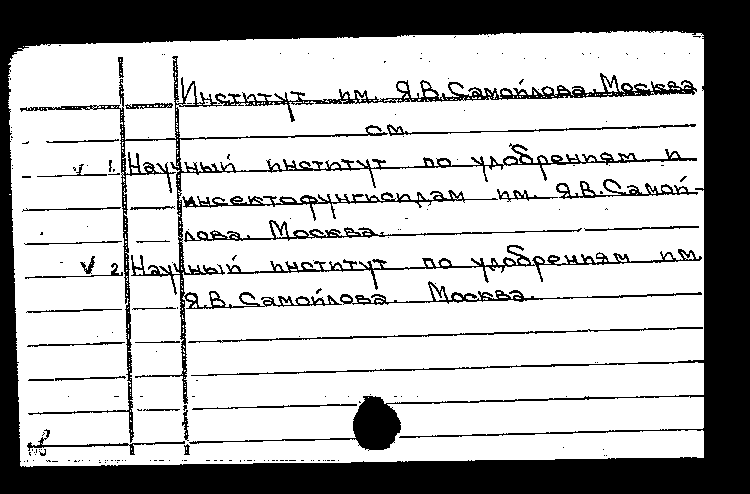 Институт им. Я.В.Самойлова. Москва.
см.
v 1. Научный институт по удобрениям и
инсектофунгисидам им. Я.В.Самой-
лова. Москва.
V 2. Научный институт по удобрениям им.
Я.В. Самойлова. Москва.